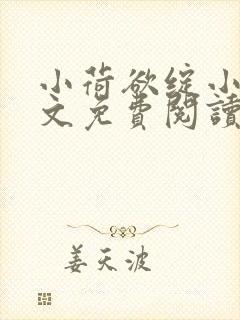 小荷欲绽小
文免費閱讀
姜天波